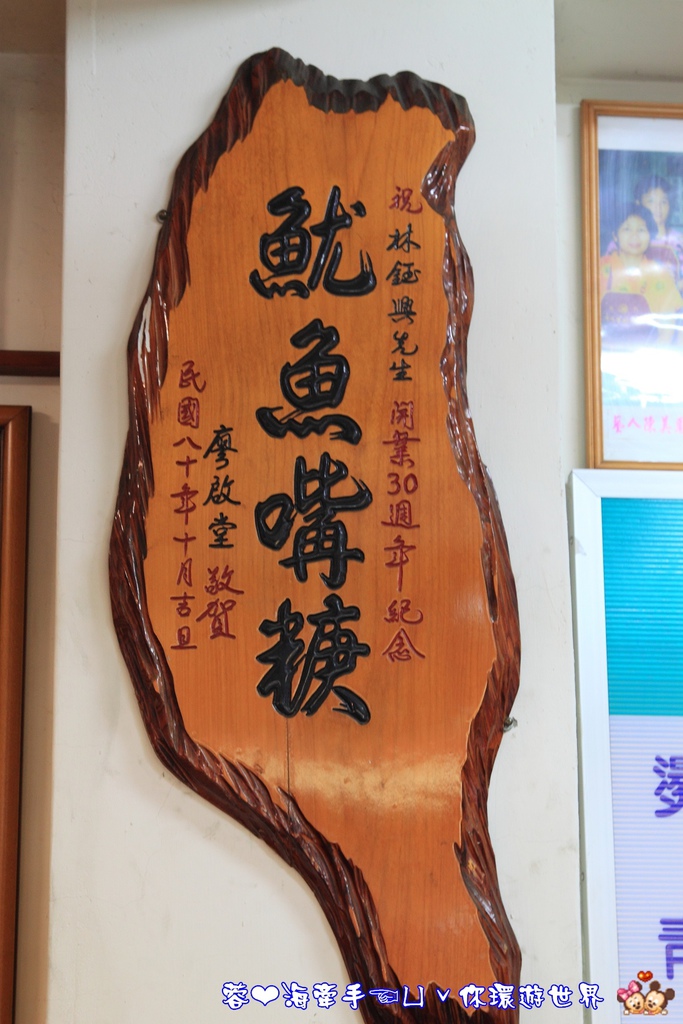 祝林鈺興先生開業30週年紀念
魷魚嘴羹
廖啟堂敬賀
民國八十年十月吉旦
蓉❤海牽手☜凵ˇ休環遊世界